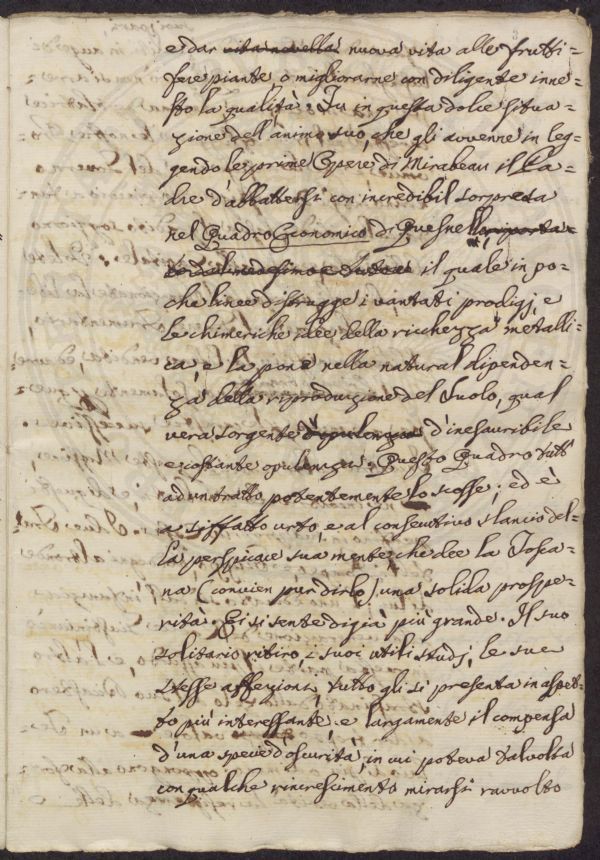 e dar vita novella nuova vita alle frutti=
fere piante o migliorarne con diligente inne=
sto la qualità. Fu in questa dolce situa=
zione dell'animo suo, che gli avvenne in leg=
gendo le prime Opere di Mirabeau il Pa=
dre d'abbattersi con incredibil sorpresa
nel Quadro Economico di Quesnell,
il quale in po=
che linee distrugge i vantati prodigj, e
le chimeriche idee della ricchezza metalli=
ca, e la pone nella natural dipenden=
za della riproduzione del suolo, qual
vera sorgente d'opulenza d'inesauribile
e costante opulenza. Questo Quadro tutt'
ad un tratto potentemente lo scosse; ed è
a siffatto urto, e al consecutivo slancio del=
la perspicace sua mente, che dee la Tosca=
na (convien pur dirlo) una solida prospe=
rità. Ei si sente digià più grande. Il suo
solitario ritiro, i suoi utili studj, le sue
stesse affezioni, tutto gli si presenta in aspet=
to più interessante, e largamente il compensa
d'una specie d'oscurità, in cui poteva talvolta
con qualche rincrescimento mirarsi ravvolto